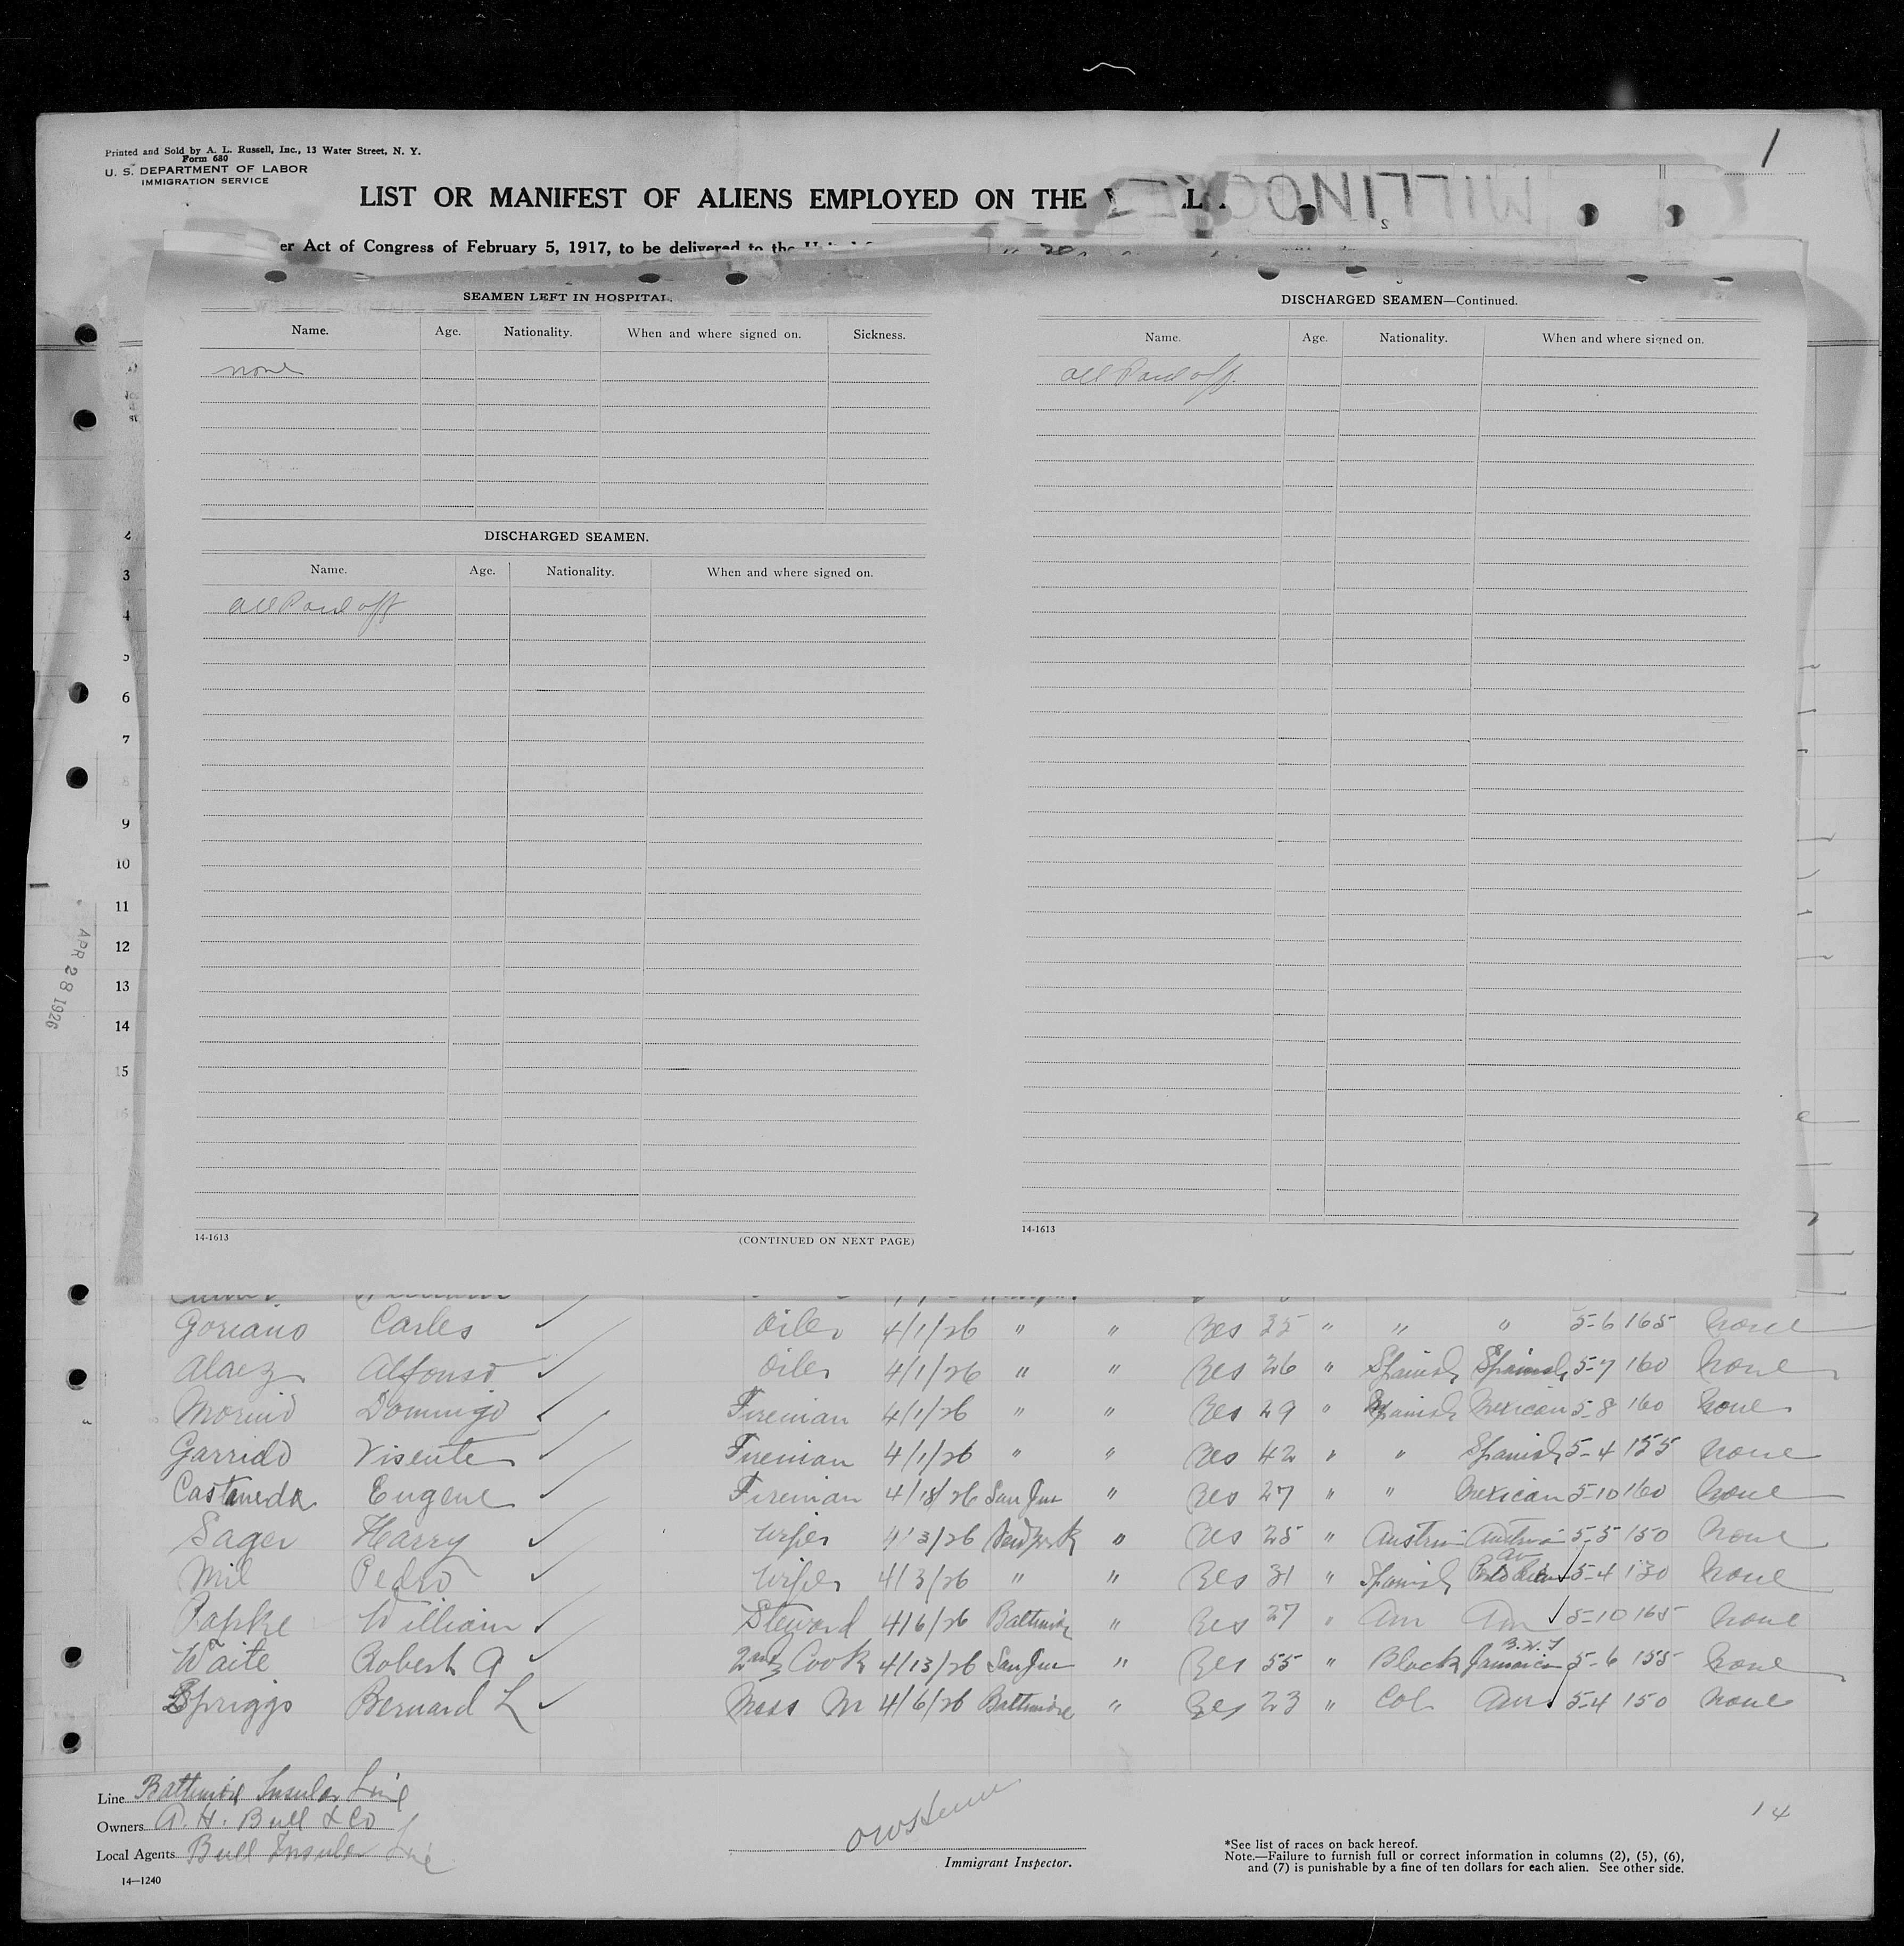 1
Printed and Sold by A. L. Russell, Inc., 13 Water Street, N. Y.
Form 680
U. S. DEPARTMENT OF LABOR
IMMIGRATION SERVICE
LIST OR MANIFEST OF ALIENS EMPLOYED ON THE
MILLINOCKET
er Act of Congress of February 5, 1917, to be delivered to the
SEAMEN LEFT IN HOSPITAL.
Name. Age. Nationality. When and where signed on. Sickness.
none
DISCHARGED SEAMEN.
Name. Age. Nationality. When and where signed on.
all Paid off
14-1613 (CONTINUED ON NEXT PAGE)
DISCHARGED SEAMEN—Continued.
Name. Age. Nationality. When and where signed on.
all Paid off.
14-1613
3
4
5
6
7
9
10
11
12
13
14
15
APR 28 1926
Goriano Carles Oiler 4/1/26 " " Yes 35 " " " 5-6 165 None
Alaez Alfonso Oiler 4/1/26 " " Yes 26 " Spanish Spanish 5-7 160 None
Morino Domingo Fireman 4/1/26 " " Yes 29 " Spanish Mexican 5-8 160 None
Garrido Visente Fireman 4/1/26 " " Yes 42 " " Spanish 5-4 155 None
Castaneda Eugene Fireman 4/18/26 San Jun " Yes 27 " " Mexican 5-10 160 None
Sager Harry Wiper 4/3/26 New York " Yes 25 " Austria Austria 5-5 150 None
Mil Pedro Wiper 4/3/26 " " Yes 31 " Spanish Porto Rican 5-4 130 None
Papke William Steward 4/6/26 Baltimore " Yes 27 " Am Am 5-10 165 None
Waite Robert A 2nd Cook 4/13/26 San Jun " Yes 55 " Black B.W.I Jamaica 5-6 155 None
Spriggs Bernard L Mess M 4/6/26 Baltimore " Yes 23 " Col Am 5-4 150 None
Line Baltimore Insular Line
Owners A. H. Bull & Co
Local Agents Bull Insular Line
14—1240
Immigrant Inspector.
14
*See list of races on back hereof.
Note.—Failure to furnish full or correct information in columns (2), (5), (6),
and (7) is punishable by a fine of ten dollars for each alien. See other side.